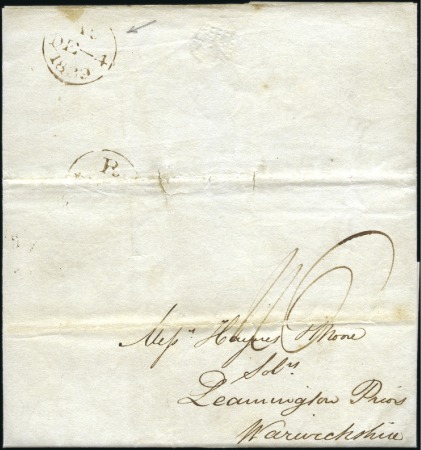 R
Mess.rs Haymes & Moore
Sol.rs
Leamington Priors
Warwickshire